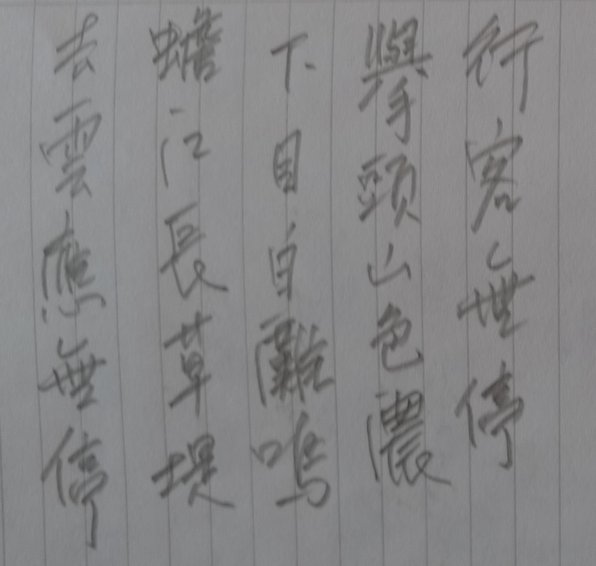 行客無停
擧頭山色濃
下目自難鳴
蟾江長草堤
去雲應無停